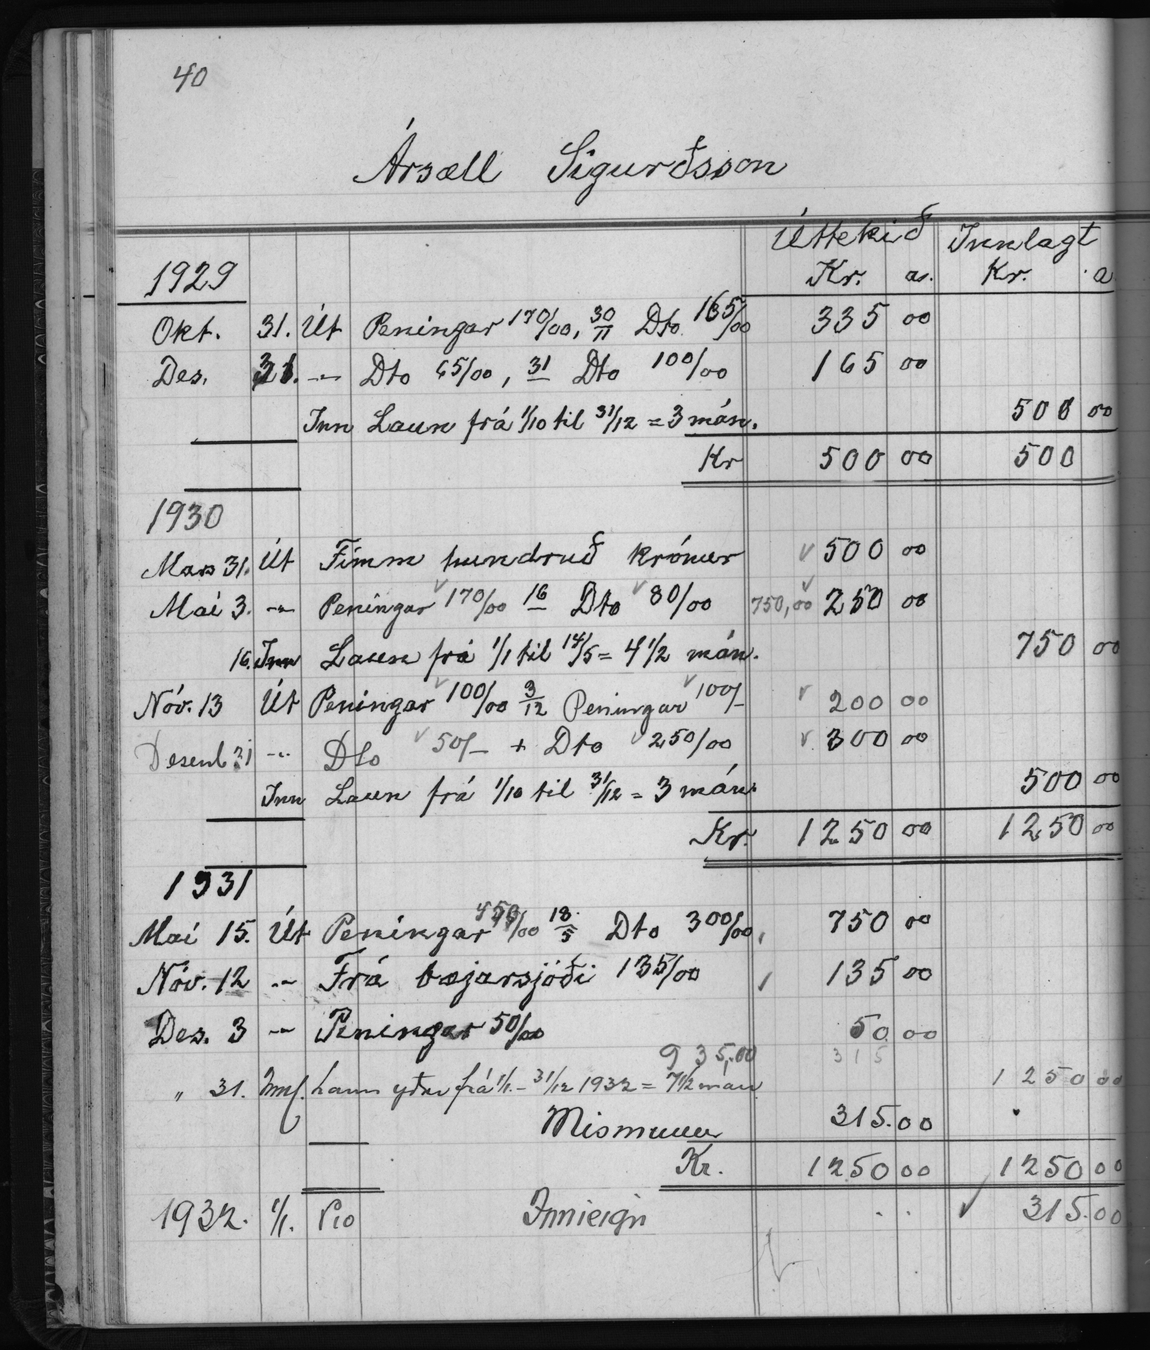 40
Ársæll Sigurðsson
Úttekið Innlagt
1929 Kr. a. Kr. a
Okt. 31. Út Peningar 170/00, 30/11 Dto 165/00 335 00
Des. 31. -"- Dto 65/00, 31 Dto 100/00 165 00
Inn Laun frá 1/10 til 31/12 = 3 mán. 500 00
Kr 500 00 500
1930
Mars 31. Út Fimm hundruð krónur 500 00
Mai 3. -"- Peningar 170/00 16 Dto 80/00 750,00 250 00
16. Inn Laun frá 1/1 til 14/5 = 4 1/2 mán. 750 00
Nóv. 13 Út Peningar 100/00 3/12 Peningar 100/- 200 00
Desemb 31 -"- Dto 50/- + Dto 250/00 300 00
Inn Laun frá 1/10 til 31/12 = 3 mán. 500 00
Kr. 1250 00 1250 00
1931
Mai 15. Út Peningar 450/00 18/5 Dto 300/00 750 00
Nóv. 12 -"- Frá bæjarsjóði 135/00 135 00
Des. 3 -"- Peningar 50/00 50 00
935,00 315
" 31. Laun yðar frá 1/1 - 31/12 1932 = 7 1/2 mán 1250 00
Mismunur 315.00
Kr. 1250 00 1250 00
1932. 1/1. Innieign 315.00